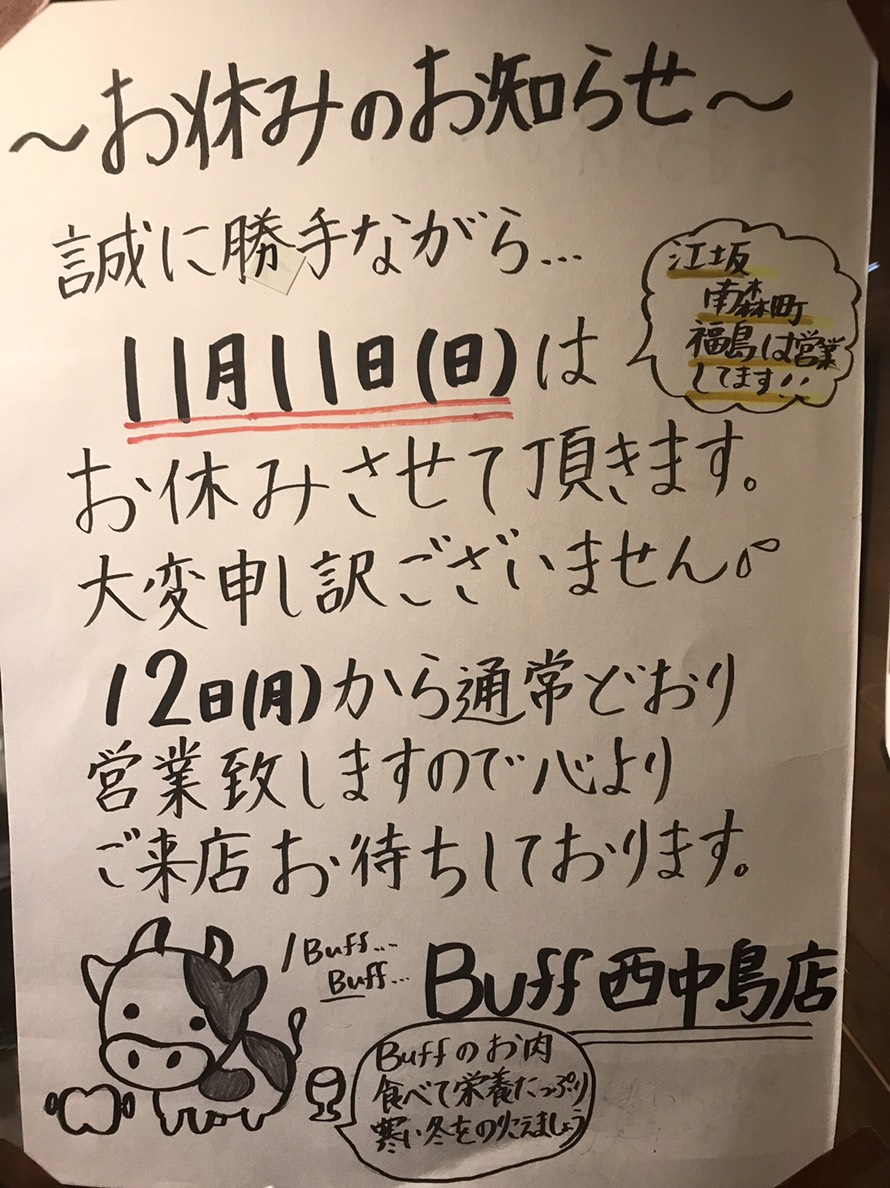 ～お休みのお知らせ～
誠に勝手ながら…
江坂
南森町
福島は営業
してます!!
11月11日(日)は
お休みさせて頂きます。
大変申し訳ございません
12日(月)から通常どおり
営業致しますので心より
ご来店お待ちしております。
Buff…
Buff…
Buff 西中島店
Buffのお肉
食べて栄養たっぷり
寒い冬をのりこえましょう